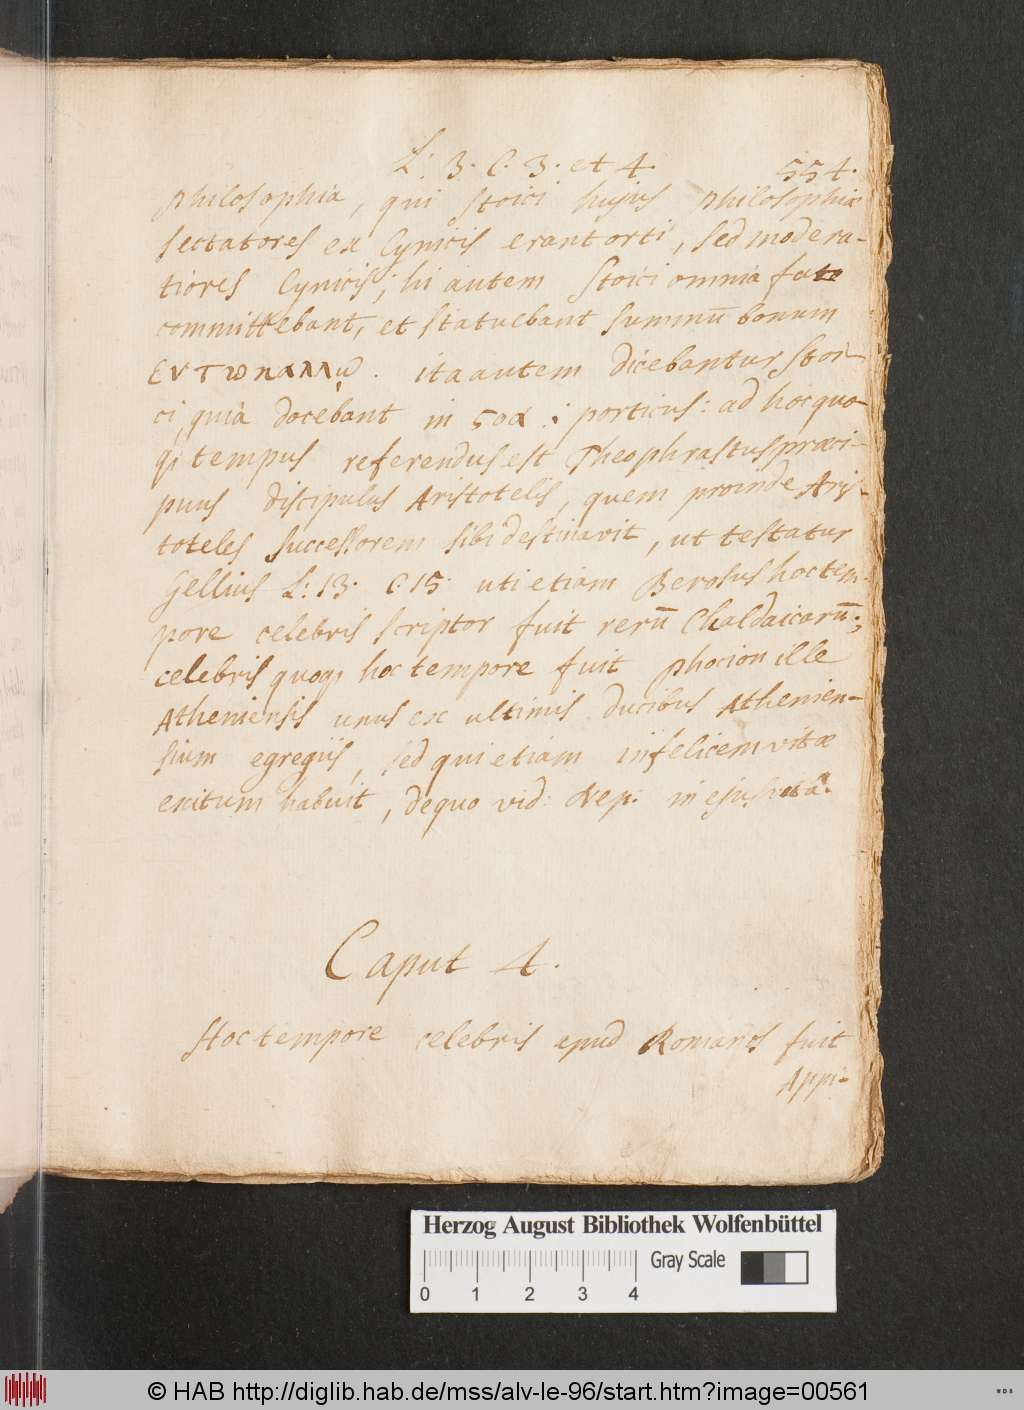 L: 3. C. 3. et 4. 554.
philosophia, qui stoici hujus philosophiæ
sectatores ex Cynicis erant orti, sed modera-
tiores Cynicis; hi autem Stoici omnia fato
committebant, et statuebant summū bonum
εν τω καλλῳ. ita autem dicebantur Stoi-
ci, quià docebant in ϛοᾳ i: porticus: ad hoc quo-
qȝ tempus referendus est Theophrastus præci-
puus discipulus Aristotelis, quem proinde Aris-
toteles successorem sibi destinavit, ut testatur
Gellius L: 13. C. 15. uti etiam Berosus hoc tem-
pore celebris scriptor fuit rerū Chaldaicarū;
celebris quoqȝ hoc tempore fuit phocion ille
Atheniensis unus ex ultimis ducibus Athenien-
sium egregiis, sed qui etiam infelicem vitæ
exitum habuit, de quo vid: Nep: in ejus vitâ.
Caput 4.
Hoc tempore celebris apud Romanos fuit
Appi-
Herzog August Bibliothek Wolfenbüttel
Gray Scale
0 1 2 3 4
© HAB http://diglib.hab.de/mss/alv-le-96/start.htm?image=00561